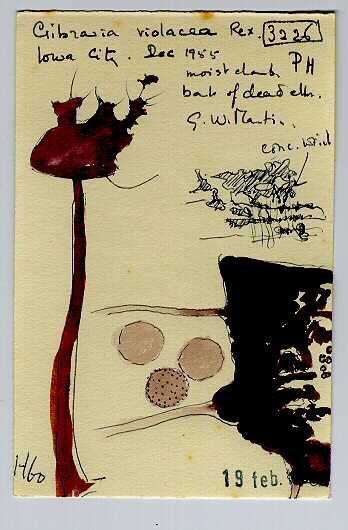 Cribraria violacea Rex. 3226
Iowa City. Dec 1955 PH
moist chamb.
bark of dead elm.
G. W. Martin.
1160
19 feb.